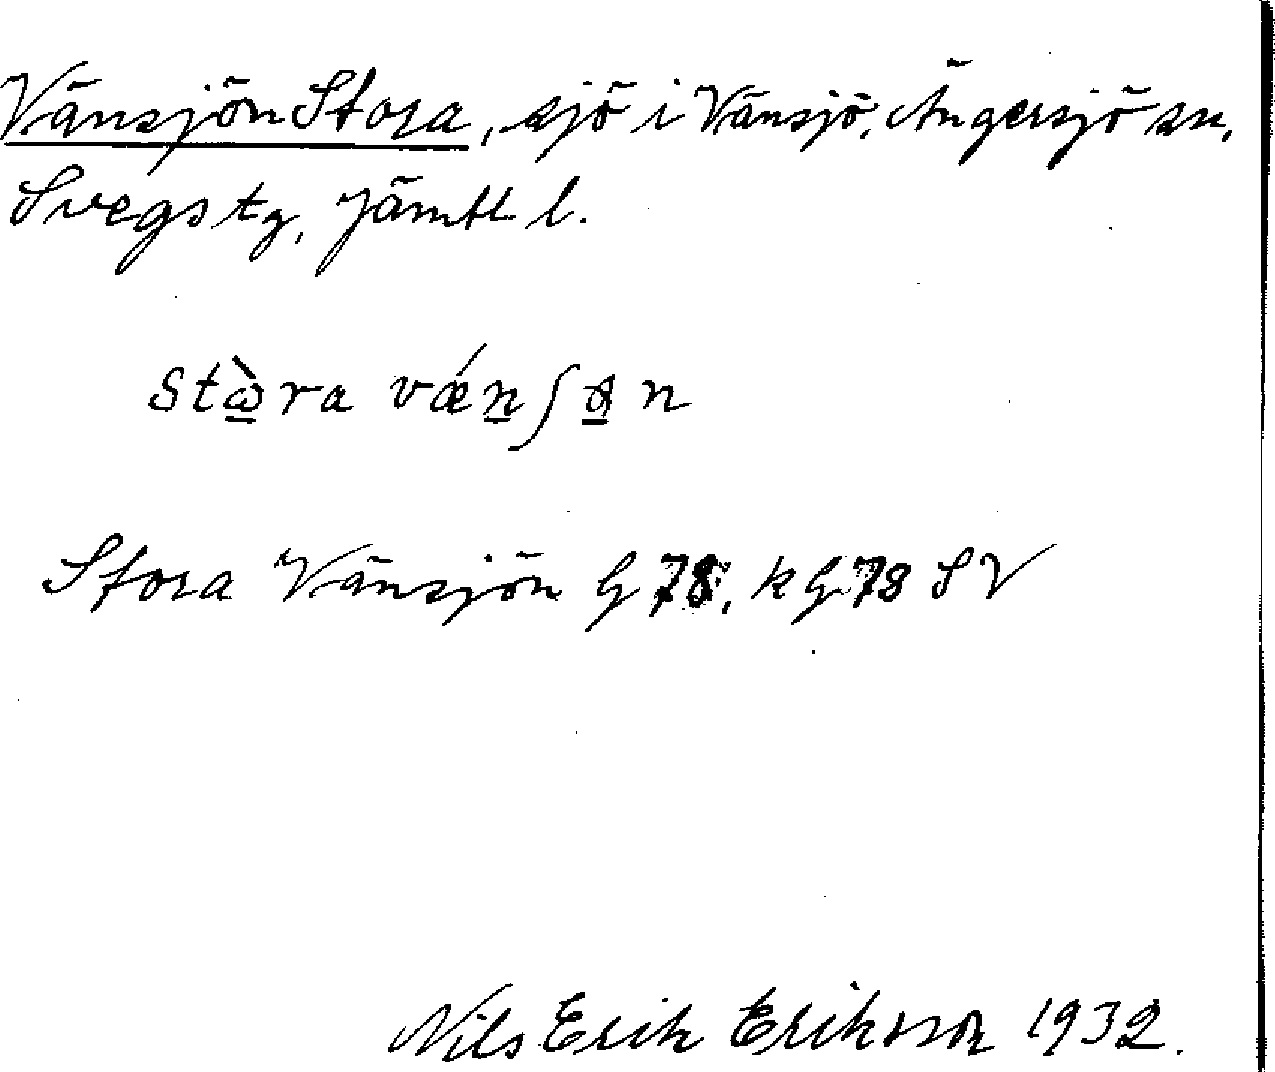 Vänsjön Stora, sjö i Vänsjö, Ängersjö sn,
Svegs tg, Jämtl l.
stὼ̲ra vǽn̲ʃɵ̲n
Stora Vänsjön G 78, k G 78 SV
Nils Erik Eriksson 1932.